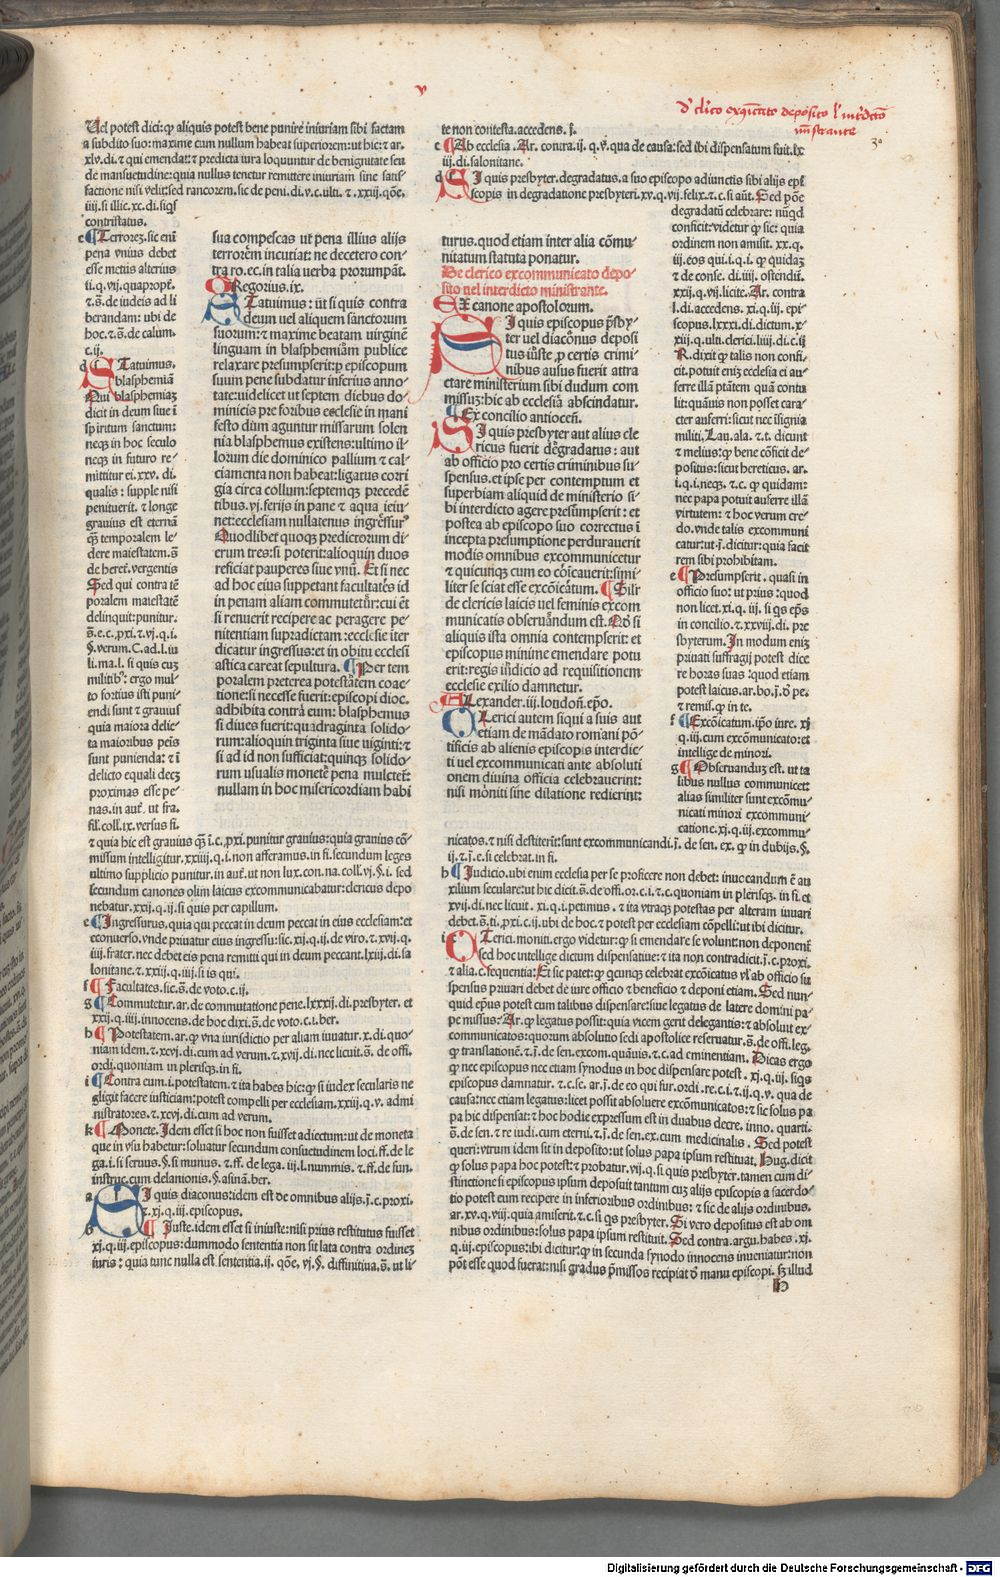 v
Uel potest dici: qͥ aliquis potest bene punire iniuriam sibi factam
a subdito suo: maxime cum nullum habeat superiorem: ut hic: ⁊ ar.
xlv. di. ⁊ qui emendat: ⁊ predicta iura loquuntur de benignitate seu
de mansuetudine: quia nullus tenetur remittere iniuriam sine satis-
factione nisi velit: sed rancorem. sic de peni. di. v. c. ulti. ⁊ .xxiij. qōe.
iiij. si illic. xc. di. siqs
contristatus.
e ¶ Terrorez. sic eni
pena vnius debet
esse metus alterius
ij. q. vij. quapropt.
⁊ s̄. de iudeis ad li
berandam: ubi de
hoc. ⁊ s̄. de calum.
c. ij.
d Statuimus.
blasphemiā
Qui blasphemiaz
dicit in deum siue i
spiritum sanctum:
neqz in hoc seculo
neqz in futuro re-
mittitur ei. xxv. di.
qualis: supple nisi
penituerit. ⁊ longe
grauius est eternā
q̄ temporalem le-
dere maiestatem. s̄
de heret. vergentis
Sed qui contra te
poralem maiestatē
delinquit: punitur.
s̄. e. c. pxi. ⁊ vj. q. i.
§. verum. C. ad. l. iu
li. ma. l. si quis cuz
militibꝰ: ergo mul-
to fortius isti puni-
endi sunt ⁊ grauius
quia maiora delic-
ta maioribus peis
sunt punienda: ⁊ i
delicto equali decz
proximas esse pe-
nas. in aut. ut fra.
fil. coll. ix. versus fi.
⁊ quia hic est grauius q̄ i. c. pxi. punitur grauius: quia grauius cō-
missum intelligitur. xxiiij. q. i. non afferamus. in fi. secundum leges
ultimo supplicio punitur. in aut. ut non lux. con. na. coll. vj. §. i. sed
secundum canones olim laicus excommunicabatur: clericus depo
nebatur. xxij. q. ij. si quis per capillum.
e ¶ Ingressurus. quia qui peccat in deum peccat in eius ecclesiam: et
econuerso. vnde priuatur eius ingressu: sic. xij. q. ij. de viro. ⁊ xvij. q.
iiij. frater. nec debet eis pena remitti qui in deum peccant. lxiij. di. sa
lonitane. ⁊ xxiij. q. iiij. si is qui.
f ¶ Facultates. sic. s̄. de voto. c. ij.
g ¶ Commutetur. ar. de commutatione pene. lxxxij. di. presbyter. et
xxij. q. iiij. innocens. de hoc dixi. s̄. de voto. c. i. ber.
h ¶ Potestatem. ar. qͥ vna iurisdictio per aliam iuuatur. x. di. quo-
niam idem. ⁊ xcvi. di. cum ad verum. ⁊ xvij. di. nec licuit. s̄. de offi.
ordi. quoniam in plerisqz. in fi.
i ¶ Contra eum. i. potestatem. ⁊ ita habes hic: qͥ si iudex secularis ne
gligit facere iusticiam: potest compelli per ecclesiam. xxiij. q. v. admi
nistratores. ⁊ xcvj. di. cum ad verum.
k ¶ Monete. Idem esset si hoc non fuisset adiectum: ut de moneta
que in vsu habetur: soluatur secundum consuetudinem loci. ff. de le
ga. i. si seruus. §. si munus. ⁊ ff. de lega. iij. l. nummis. ⁊ ff. de fun.
instruc. cum delanionis. §. asinam. ber.
a Si quis diaconus: idem est de omnibus alijs. j. c. proxi.
⁊ xj. q. iij. episcopus.
b ¶ Iuste. idem esset si iniuste: nisi prius restitutus fuisset
xj. q. iij. episcopus: dummodo sententia non sit lata contra ordinez
iuris: quia tunc nulla est sententia. ij. qōe. vj. §. diffinitiua. s̄. ut li-
sua compescas ut pena illius alijs
terrorem incutiat: ne decetero con-
tra ro. ec. in talia uerba prorumpāt.
Gregorius. ix.
Statuimus: ut si quis contra
deum uel aliquem sanctorum
suorum: ⁊ maxime beatam uirginē
linguam in blasphemiām publice
relaxare presumpserit: p episcopum
suum pene subdatur inferius anno-
tate: uidelicet ut septem diebus do-
minicis pre foribus ecclesie in mani
festo dum aguntur missarum solen
nia blasphemus existens: ultimo il-
lorum die dominico pallium ⁊ cal-
ciamenta non habeat: ligatus corri
gia circa collum: septemqz precedē
tibus. vj. ferijs in pane ⁊ aqua ieiu-
net: ecclesiam nullatenus ingressurꝰ
Quodlibet quoqz predictorum di-
erum tres: si poterit: alioquin duos
reficiat pauperes siue vnū. Et si nec
ad hoc eius suppetant facultates id
in penam aliam commutetur: cui et
si renuerit recipere ac peragere pe-
nitentiam supradictam: ecclesie iter
dicatur ingressus: et in obitu ecclesi
astica careat sepultura. ¶ Per tem
poralem preterea potestatem coac-
tione: si necesse fuerit: episcopi dioc.
adhibita contra eum: blasphemus
si diues fuerit: quadraginta solido-
rum: alioquin triginta siue uiginti: ⁊
si ad id non sufficiat: quinqz solido-
rum usualis monete pena mulctet:
nullam in hoc misericordiam habi
te non contesta. accedens. j̄.
c ¶ Ab ecclesia. Ar. contra. ij. q. v. qua de causa: sed ibi dispensatum fuit. lx
iij. di. salonitane.
d Si quis presbyter. degradatus. a suo episcopo adiunctis sibi alijs epi
scopis in degradatione presbyteri. xv. q. vij. felix. ⁊ c. si aut. Sed pōe
degradatū celebrare: nūqd
conficit: videtur qͥ sic: quia
ordinem non amisit. xx. q.
iij. eos qui. i. q. i. qͥ quidaz
⁊ de conse. di. iiij. ostenditi.
xxij. q. vij. licite. Ar. contra
l. di. accedens. xi. q. iij. epi-
scopus. lxxxi. di. dictum. x-
xiij. q. ulti. clerici. liiij. di. c. ij
R. dixit qͥ talis non confi-
cit. potuit eniz ecclesia ei au-
ferre illā ptātem quā contu
lit: quāuis non posset cara-
cter auferri: sicut nec isignia
militi. Lau. ala. ⁊ t. dicunt
⁊ melius: qͥ bene cōficit de-
positus: sicut hereticus. ar.
i. q. i. neqz. ⁊ c. qͥ quidam:
nec papa potuit auferre illā
virtutem: ⁊ hoc verum cre-
do. vnde talis excommuni
catur: ut j̄. dicitur: quia facit
rem sibi prohibitam.
e ¶ Presumpserit. quasi in
officio suo: ut prius: quod
non licet. xi. q. iij. si qs eps
in concilio. ⁊ xxvij. di. pre
sbyterum. In modum eniz
priuati suffragij potest dice
re horas suas: quod etiam
potest laicus. ar. ho. j̄. d pe.
⁊ remis. qͥ in te.
f ¶ Excōicatum. ipo iure. xj
q. iij. cum excōmunicato: et
intellige de minori.
g ¶ Obseruanduz est. ut ta
libus nullus communicet:
alias similiter sunt excōmu-
nicati minori excommuni
catione. xj. q. iij. excommu-
nicatos. ⁊ nisi destiterit: sunt excommunicandi. j̄. de sen. ex. qͥ in dubijs. §.
ij. ⁊ j̄. e. si celebrat. in fi.
h ¶ Iudicio. ubi enim ecclesia per se proficere non debet: inuocandum ē au
xilium seculare: ut hic dicit. s̄. de offi. or. c. i. ⁊ c. quoniam in plerisqz. in fi. et
xvij. di. nec licuit. xi. q. i. petimus. ⁊ ita vtraqz potestas per alteram iuuari
debet. s̄. ti. pxi. c. ij. ubi de hoc. ⁊ potest per ecclesiam cōpelli: ut ibi dicitur.
i Clerici. moniti. ergo videtur: qͥ si emendare se volunt: non deponent
sed hoc intellige dictum dispensatiue: ⁊ ita non contradicit. j̄. c. proxi.
⁊ alia. c. sequentia: Et sic patet: qͥ qcunqz celebrat excōicatus vl' ab officio su
spensus priuari debet de iure officio ⁊ beneficio ⁊ deponi etiam. Sed nun-
quid epūs potest cum talibus dispensare: siue legatus de latere domini pa-
pe missus: Ar. qͥ legatus possit: quia vicem gerit delegantis: ⁊ absoluit ex-
communicatos: quorum absolutio sedi apostolice reseruatur. s̄. de offi. leg.
qͥ translationē. ⁊ j̄. de sen. excom. quāuis. ⁊ c. ad eminentiam. Dicas ergo
qͥ nec episcopus nec etiam synodus in hoc dispensare potest. xj. q. iij. siqs
episcopus damnatur. ⁊ c. se. ar. j̄. de eo qui fur. ordi. re. c. i. ⁊ ij. q. v. qua de
causa: nec etiam legatus: licet possit absoluere excōmunicatos: ⁊ sic solus pa
pa hic dispensat: ⁊ hoc hodie expressum est in duabus decre. inno. quarti-
s̄. de sen. ⁊ re iudi. cum eterni. ⁊ j̄. de sen. ex. cum medicinalis. Sed potest
queri: vtrum idem sit in deposito: ut solus papa ipsum restituat. Hug. dicit
qͥ solus papa hoc potest: ⁊ probatur. vij. q. si quis presbyter. tamen cum di-
stinctione si episcopus ipsum deposuit tantum cuz alijs episcopis a sacerdo-
tio potest eum recipere in inferioribus ordinibus: ⁊ sic de alijs ordinibus.
ar. xv. q. viij. quia amiserit. ⁊ c. si qs presbyter. Si vero depositus est ab om
nibus ordinibus: solus papa ipsum restituit. Sed contra. argu. habes. xj.
q. iij. episcopus: ibi dicitur: qͥ in secunda synodo innocens inueniatur: non
pōt esse quod fuerat: nisi gradus p̄missos recipiat d̄ manu episcopi. sz illud
H
turus. quod etiam inter alia cōmu-
nitatum statuta ponatur.
De clerico excommunicato depo-
sito uel interdicto ministrante.
Ex canone apostolorum.
Si quis episcopus p̄sby-
ter uel diacōnus deposi
tus iuste p certis crimi
nibus ausus fuerit attra
ctare ministerium sibi dudum com
missuz: hic ab ecclesia abscindatur.
¶ Ex concilio antiocen.
Si quis presbyter aut alius cle
ricus fuerit degradatus: aut
ab officio pro certis criminibus su-
spensus. et ipse per contemptum et
superbiam aliquid de ministerio si-
bi interdicto agere presumpserit: et
postea ab episcopo suo correctus i
incepta presumptione perdurauerit
modis omnibus excommunicetur
⁊ quicunqz cum eo cōicauerit: simi-
liter se sciat esse excōicatum. ¶ Silr
de clericis laicis uel feminis excom
municatis obseruandum est. Nō si
aliquis ista omnia contempserit: et
episcopus minime emendare potu
erit: regis iudicio ad requisitionem
ecclesie exilio damnetur.
Alexander. iij. london. epo.
Clerici autem siqui a suis aut
etiam de mādato romani pō-
tificis ab alienis episcopis interdic-
ti uel excommunicati ante absoluti
onem diuina officia celebrauerint:
nisi moniti sine dilatione redierint:
Digitalisierung gefördert durch die Deutsche Forschungsgemeinschaft - DFG